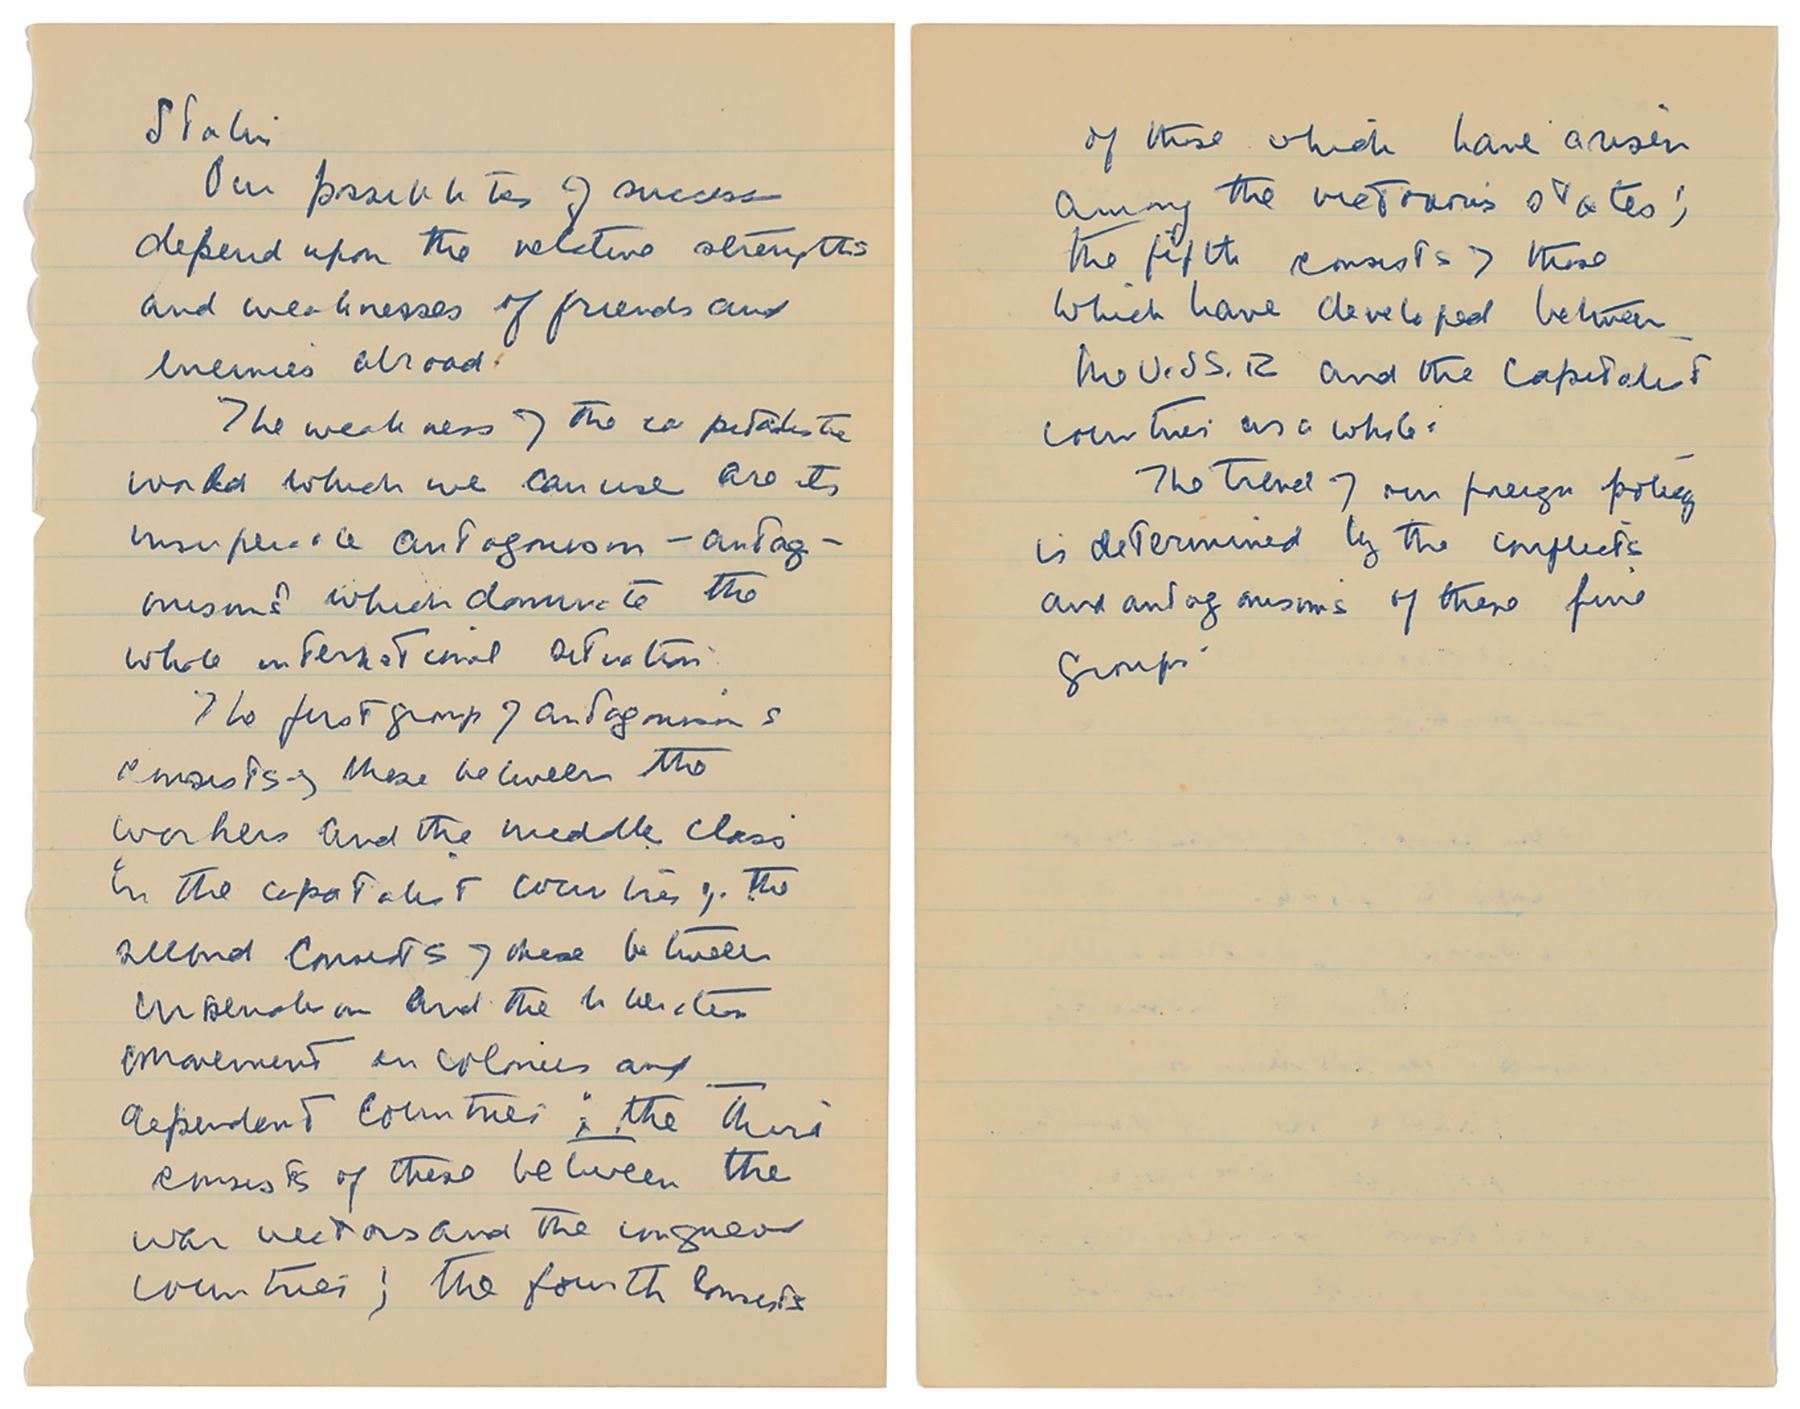 Stalin
Our possibilites of success
depend upon the relative strengths
and weaknesses of friends and
enemies abroad.
The weakness of the capitalistic
world which we can use are its
insuperable antagonism - antag-
onisms which dominate the
whole international situation.
The first group of antagonisms
consists of those between the
workers and the middle class
in the capatalist countries; the
second consists of these between
imperialism and the liberation
movement in colonies and
dependent countries; the third
consists of these between the
war victors and the conquered
countries; the fourth consists
of those which have arisen
among the victorious states;
the fifth consists of those
which have developed between
the U.S.S.R and the capitalist
countries as a whole.
The trend of our foreign policy
is determined by the conflicts
and antagonisms of these five
groups.